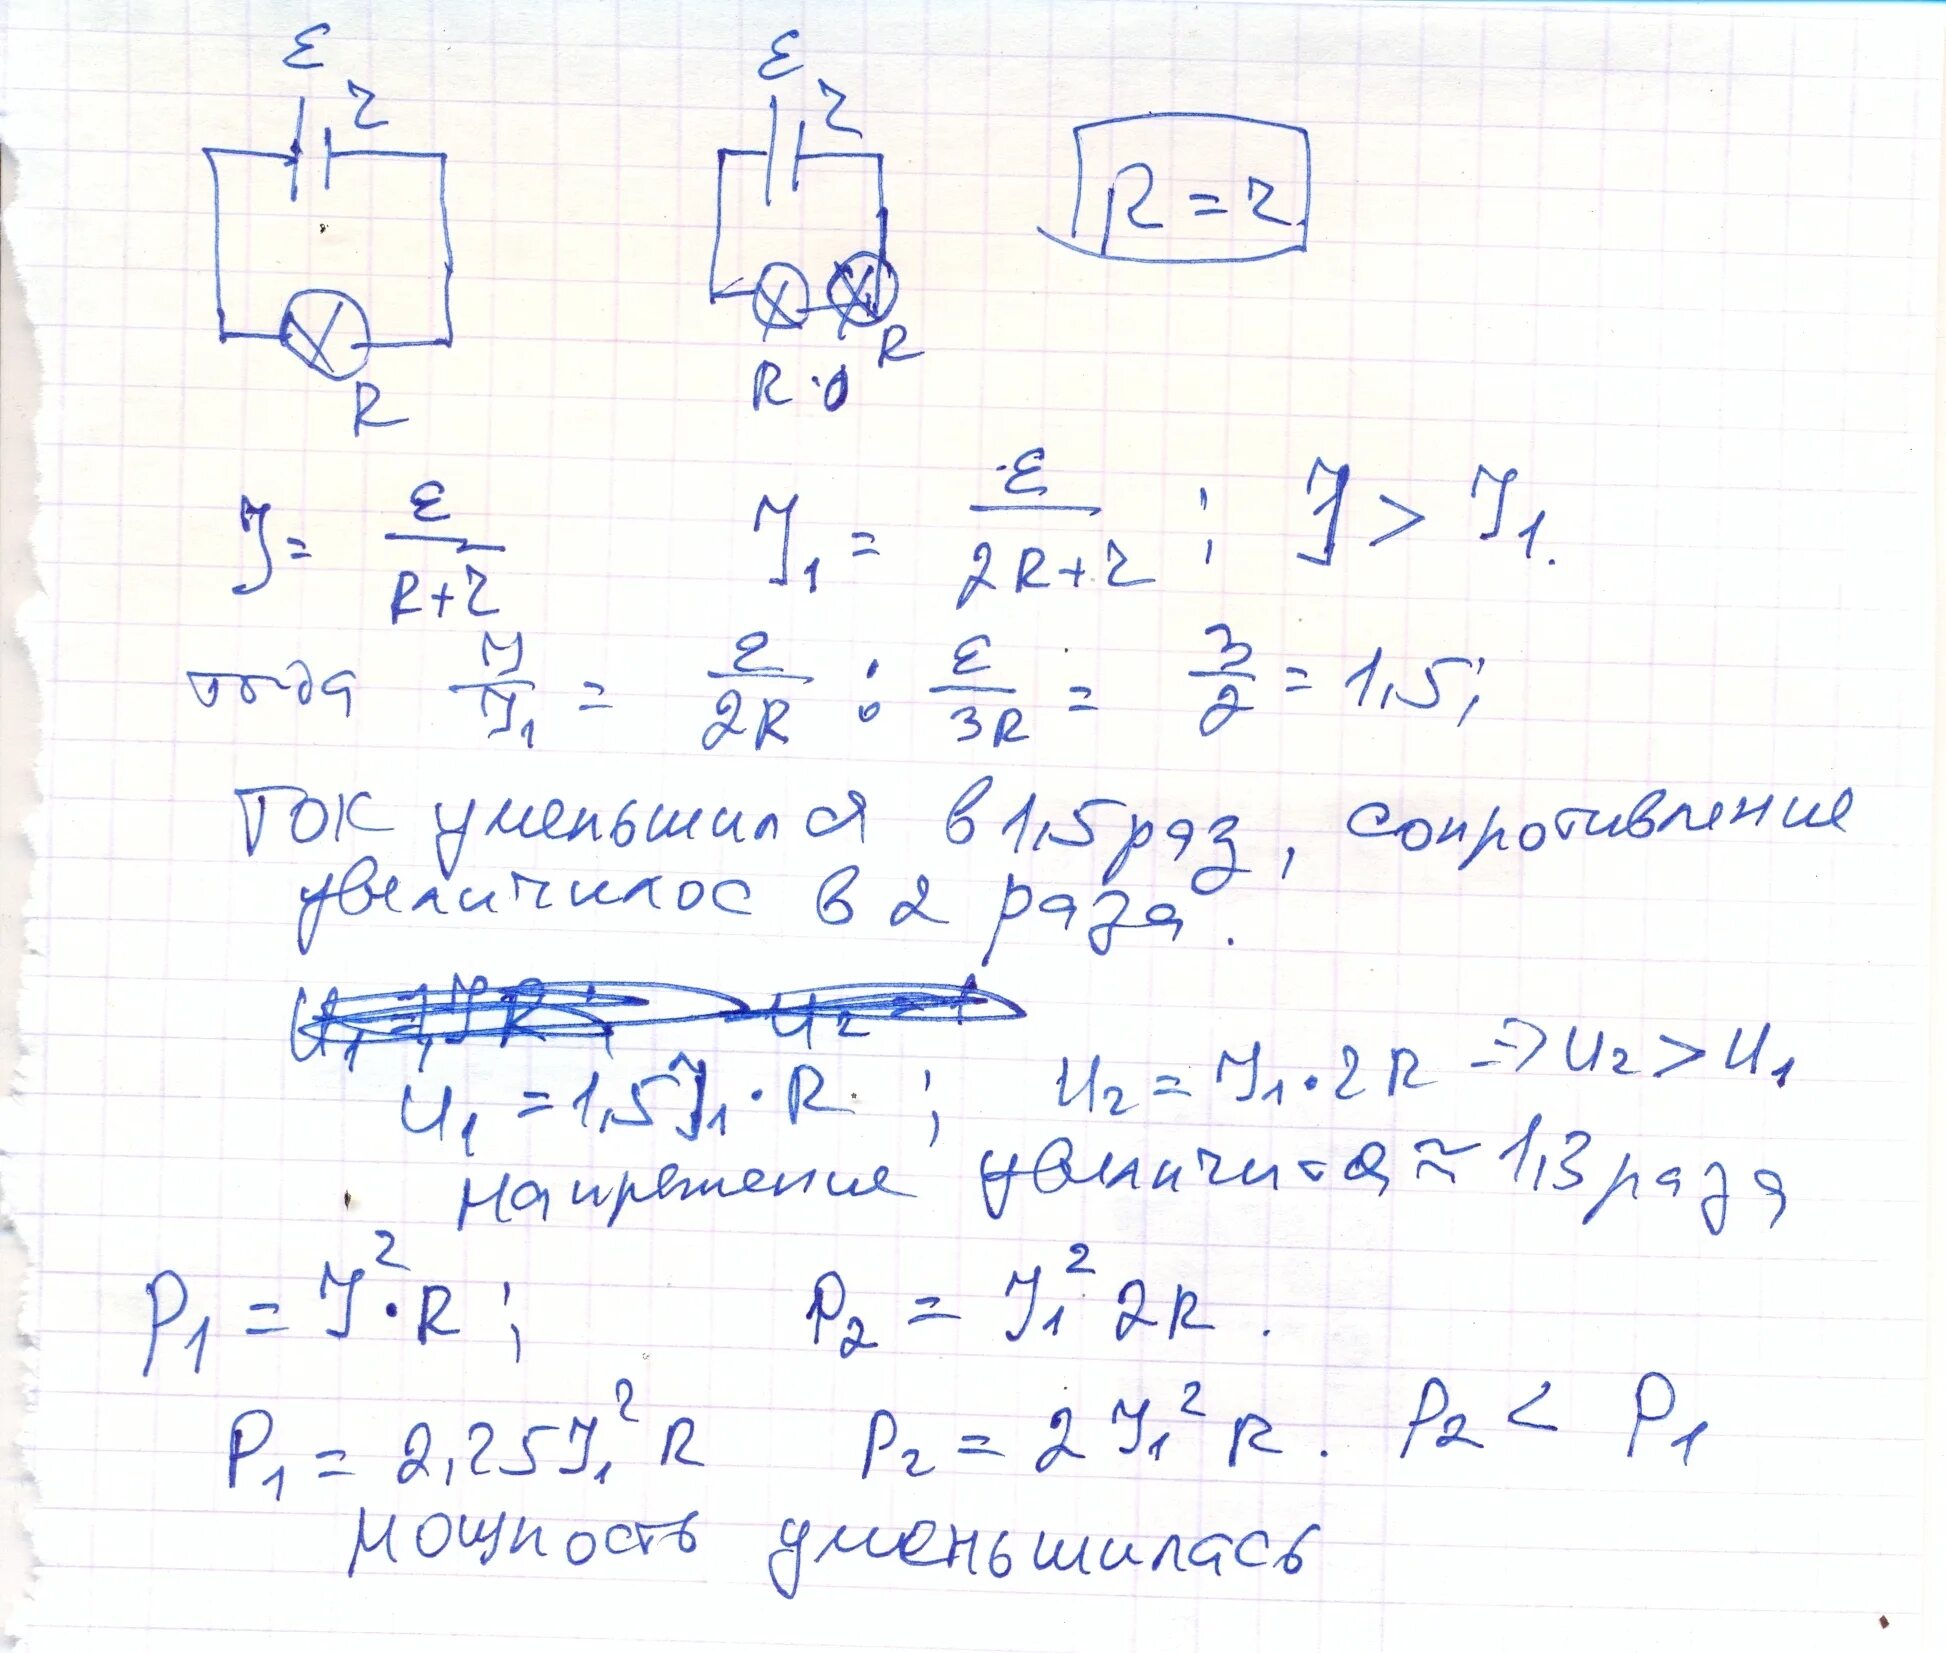 ε ε
r r
R = r
R
R R
J = ε/(R+r) J₁ = ε/(2R+r) ; J > J₁.
тогда J/J₁ = ε/2R : ε/3R = 3/2 = 1,5;
Ток уменьшился в 1,5 раз, сопротивление
увеличилос в 2 раза.
U₁ = 1,5J₁·R ; U₂ = J₁·2R ⇒ U₂ > U₁
напряжение увеличится ≈ 1,3 раза
P₁ = J²·R ; P₂ = J₁² 2R.
P₁ = 2,25J₁²R P₂ = 2J₁²R. P₂ < P₁
мощность уменьшилась